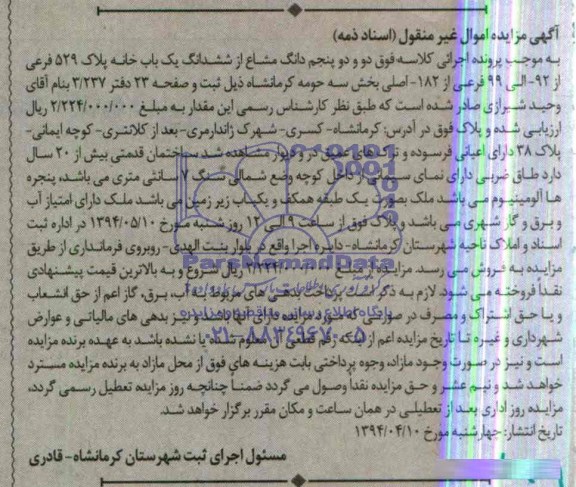 آگهی مزایده اموال غیر منقول (اسناد ذمه)
به موجب پرونده اجرائی کلاسه فوق دو و دو پنجم دانگ مشاع از ششدانگ یک باب خانه پلاک ۵۲۹ فرعی
از ۹۲- الی ۹۹ فرعی از ۱۸۲- اصلی بخش سه حومه کرمانشاه ذیل ثبت و صفحه ۲۳ دفتر ۳/۲۳۷ بنام آقای
وحید شیرازی صادر شده است که طبق نظر کارشناس رسمی این مقدار به مبلغ ۲/۲۲۴/۰۰۰/۰۰۰ ریال
ارزیابی شده و پلاک فوق در آدرس: کرمانشاه- کسری- شهرک ژاندارمری- بعد از کلانتری- کوچه ایمانی-
پلاک ۳۸ دارای اعیانی فرسوده و ترک های عمیق در و دیوار مشاهده شد ساختمان قدمتی بیش از ۲۰ سال
دارد طاق ضربی دارای نمای سیمانی از داخل کوچه وضع شمالی سنگ ۷ سانتی متری می باشد، پنجره
ها آلومینیوم می باشد ملک بصورت یک طبقه همکف و یکباب زیر زمین می باشد ملک دارای امتیاز آب
و برق و گاز شهری می باشد و پلاک فوق از ساعت ۹ الی ۱۲ روز شنبه مورخ ۱۳۹۴/۰۵/۱۰ در اداره ثبت
اسناد و املاک ناحیه شهرستان کرمانشاه- دایره اجرا واقع در بلوار بنت الهدی- روبروی فرمانداری از طریق
مزایده به فروش می رسد. مزایده از مبلغ ۲/۲۲۴/۰۰۰/۰۰۰ ریال شروع و به بالاترین قیمت پیشنهادی
نقداً فروخته می شود. لازم به ذکر است پرداخت بدهی های مربوط به آب، برق، گاز اعم از حق انشعاب
و یا حق اشتراک و مصرف در صورتی که مورد مزایده دارای آنها باشد و نیز بدهی های مالیاتی و عوارض
شهرداری و غیره تا تاریخ مزایده اعم از اینکه رقم قطعی آن معلوم شده یا نشده باشد به عهده برنده مزایده
است و نیز در صورت وجود مازاد، وجوه پرداختی بابت هزینه های فوق از محل مازاد به برنده مزایده مسترد
خواهد شد و نیم عشر و حق مزایده نقداً وصول می گردد ضمناً چنانچه روز مزایده تعطیل رسمی گردد،
مزایده روز اداری بعد از تعطیلی در همان ساعت و مکان مقرر برگزار خواهد شد.
تاریخ انتشار: چهارشنبه مورخ ۱۳۹۴/۰۴/۱۰
مسئول اجرای ثبت شهرستان کرمانشاه- قادری
ParsNamadData
۰۲۱-۸۸۳۴۹۶۷۰-۵